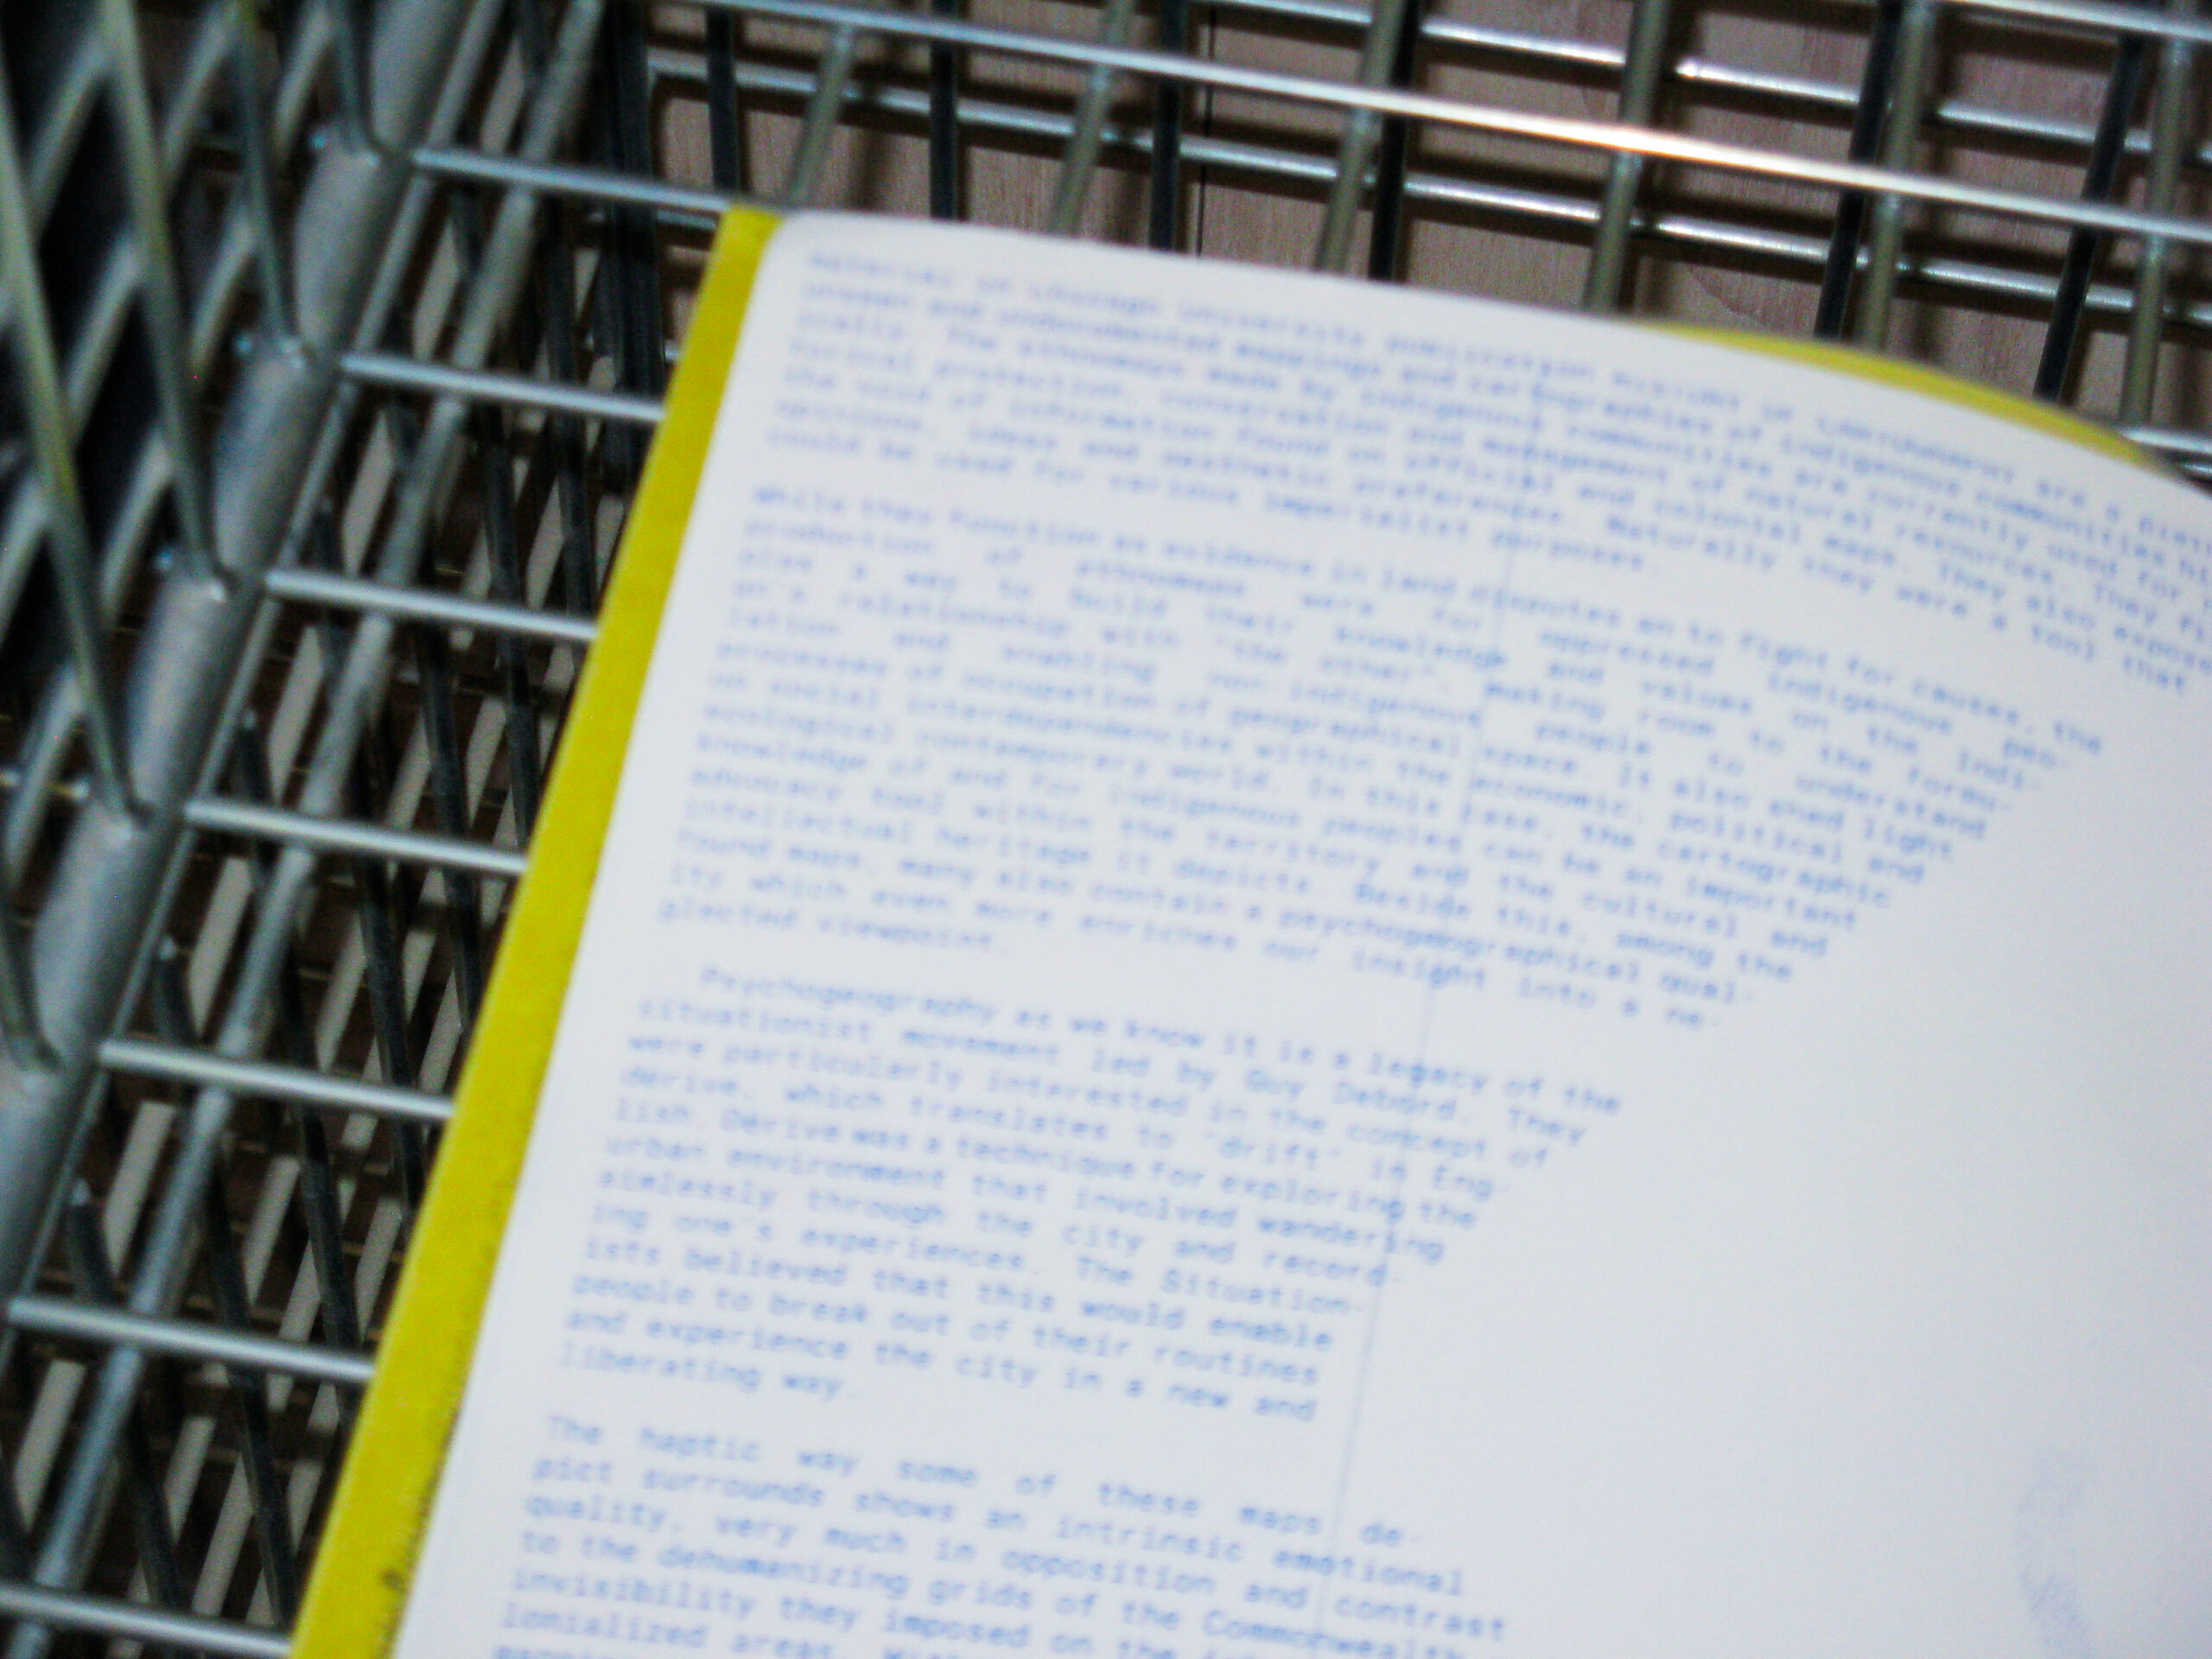 material in Chicago University publication HISTORY OF CARTOGRAPHY are a
unseen and undocumented mappings and cartographies of indigenous communities
The ethnomaps made by indigenous communities are currently used for
protection, conservation and management of natural resources. They
the void of information found on official and colonial maps. They also expose
ideas and aesthetic preferences. Naturally they were a tool that
could be used for various imperialist purposes.
While they function as evidence in land disputes an to fight for causes, the
production of ethnomaps were for oppressed indigenous peo-
ples a way to build their knowledge and values on the indi-
relationship with "the other", making room to the formu-
lation and enabling non-indigenous people to understand
processes of occupation of geographical space. It also shed light
on social interdependencies within the economic, political and
ecological contemporary world. In this case, the cartographic
knowledge of and for indigenous peoples can be an important
advocacy tool within the territory and the cultural and
intellectual heritage it depicts. Beside this, among the
found maps, many also contain a psychogeographical qual-
ity which even more enriches our insight into a ne-
glected viewpoint.
Psychogeography as we know it is a legacy of the
situationist movement led by Guy Debord. They
were particularly interested in the concept of
dérive, which translates to "drift" in Eng-
lish. Dérive was a technique for exploring the
urban environment that involved wandering
aimlessly through the city and record-
ing one's experiences. The Situation-
ists believed that this would enable
people to break out of their routines
and experience the city in a new and
liberating way.
The haptic way some of these maps de-
pict surrounds shows an intrinsic emotional
quality, very much in opposition and contrast
to the dehumanizing grids of the Commonwealth
invisibility they imposed on the
lonialized areas.